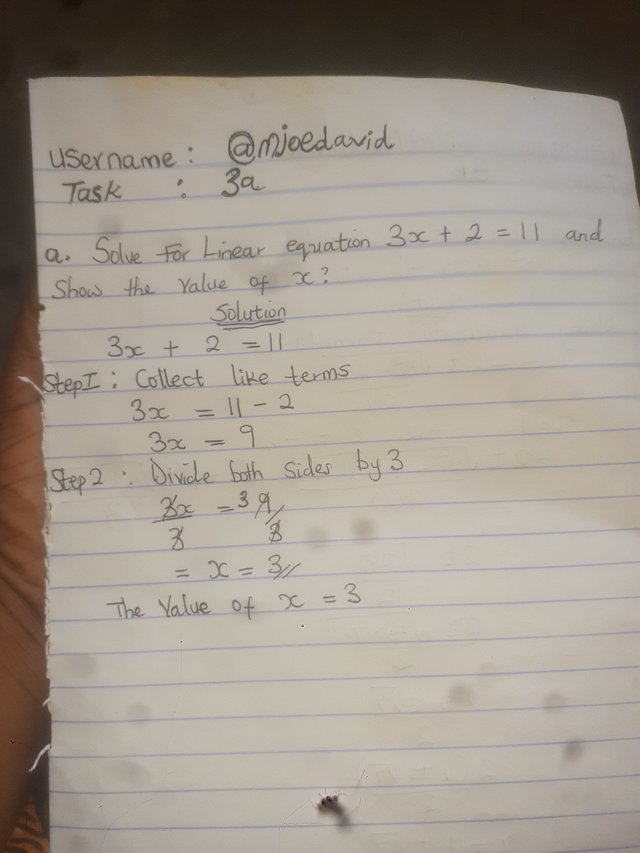 username : @mjoedavid
Task : 3a
a. Solve for Linear equation 3x + 2 = 11 and
Show the value of x?
Solution
3x + 2 = 11
Step I : Collect like terms
3x = 11 - 2
3x = 9
Step 2 : Divide both sides by 3
3x/3 = 3 9/3
= x = 3//
The value of x = 3